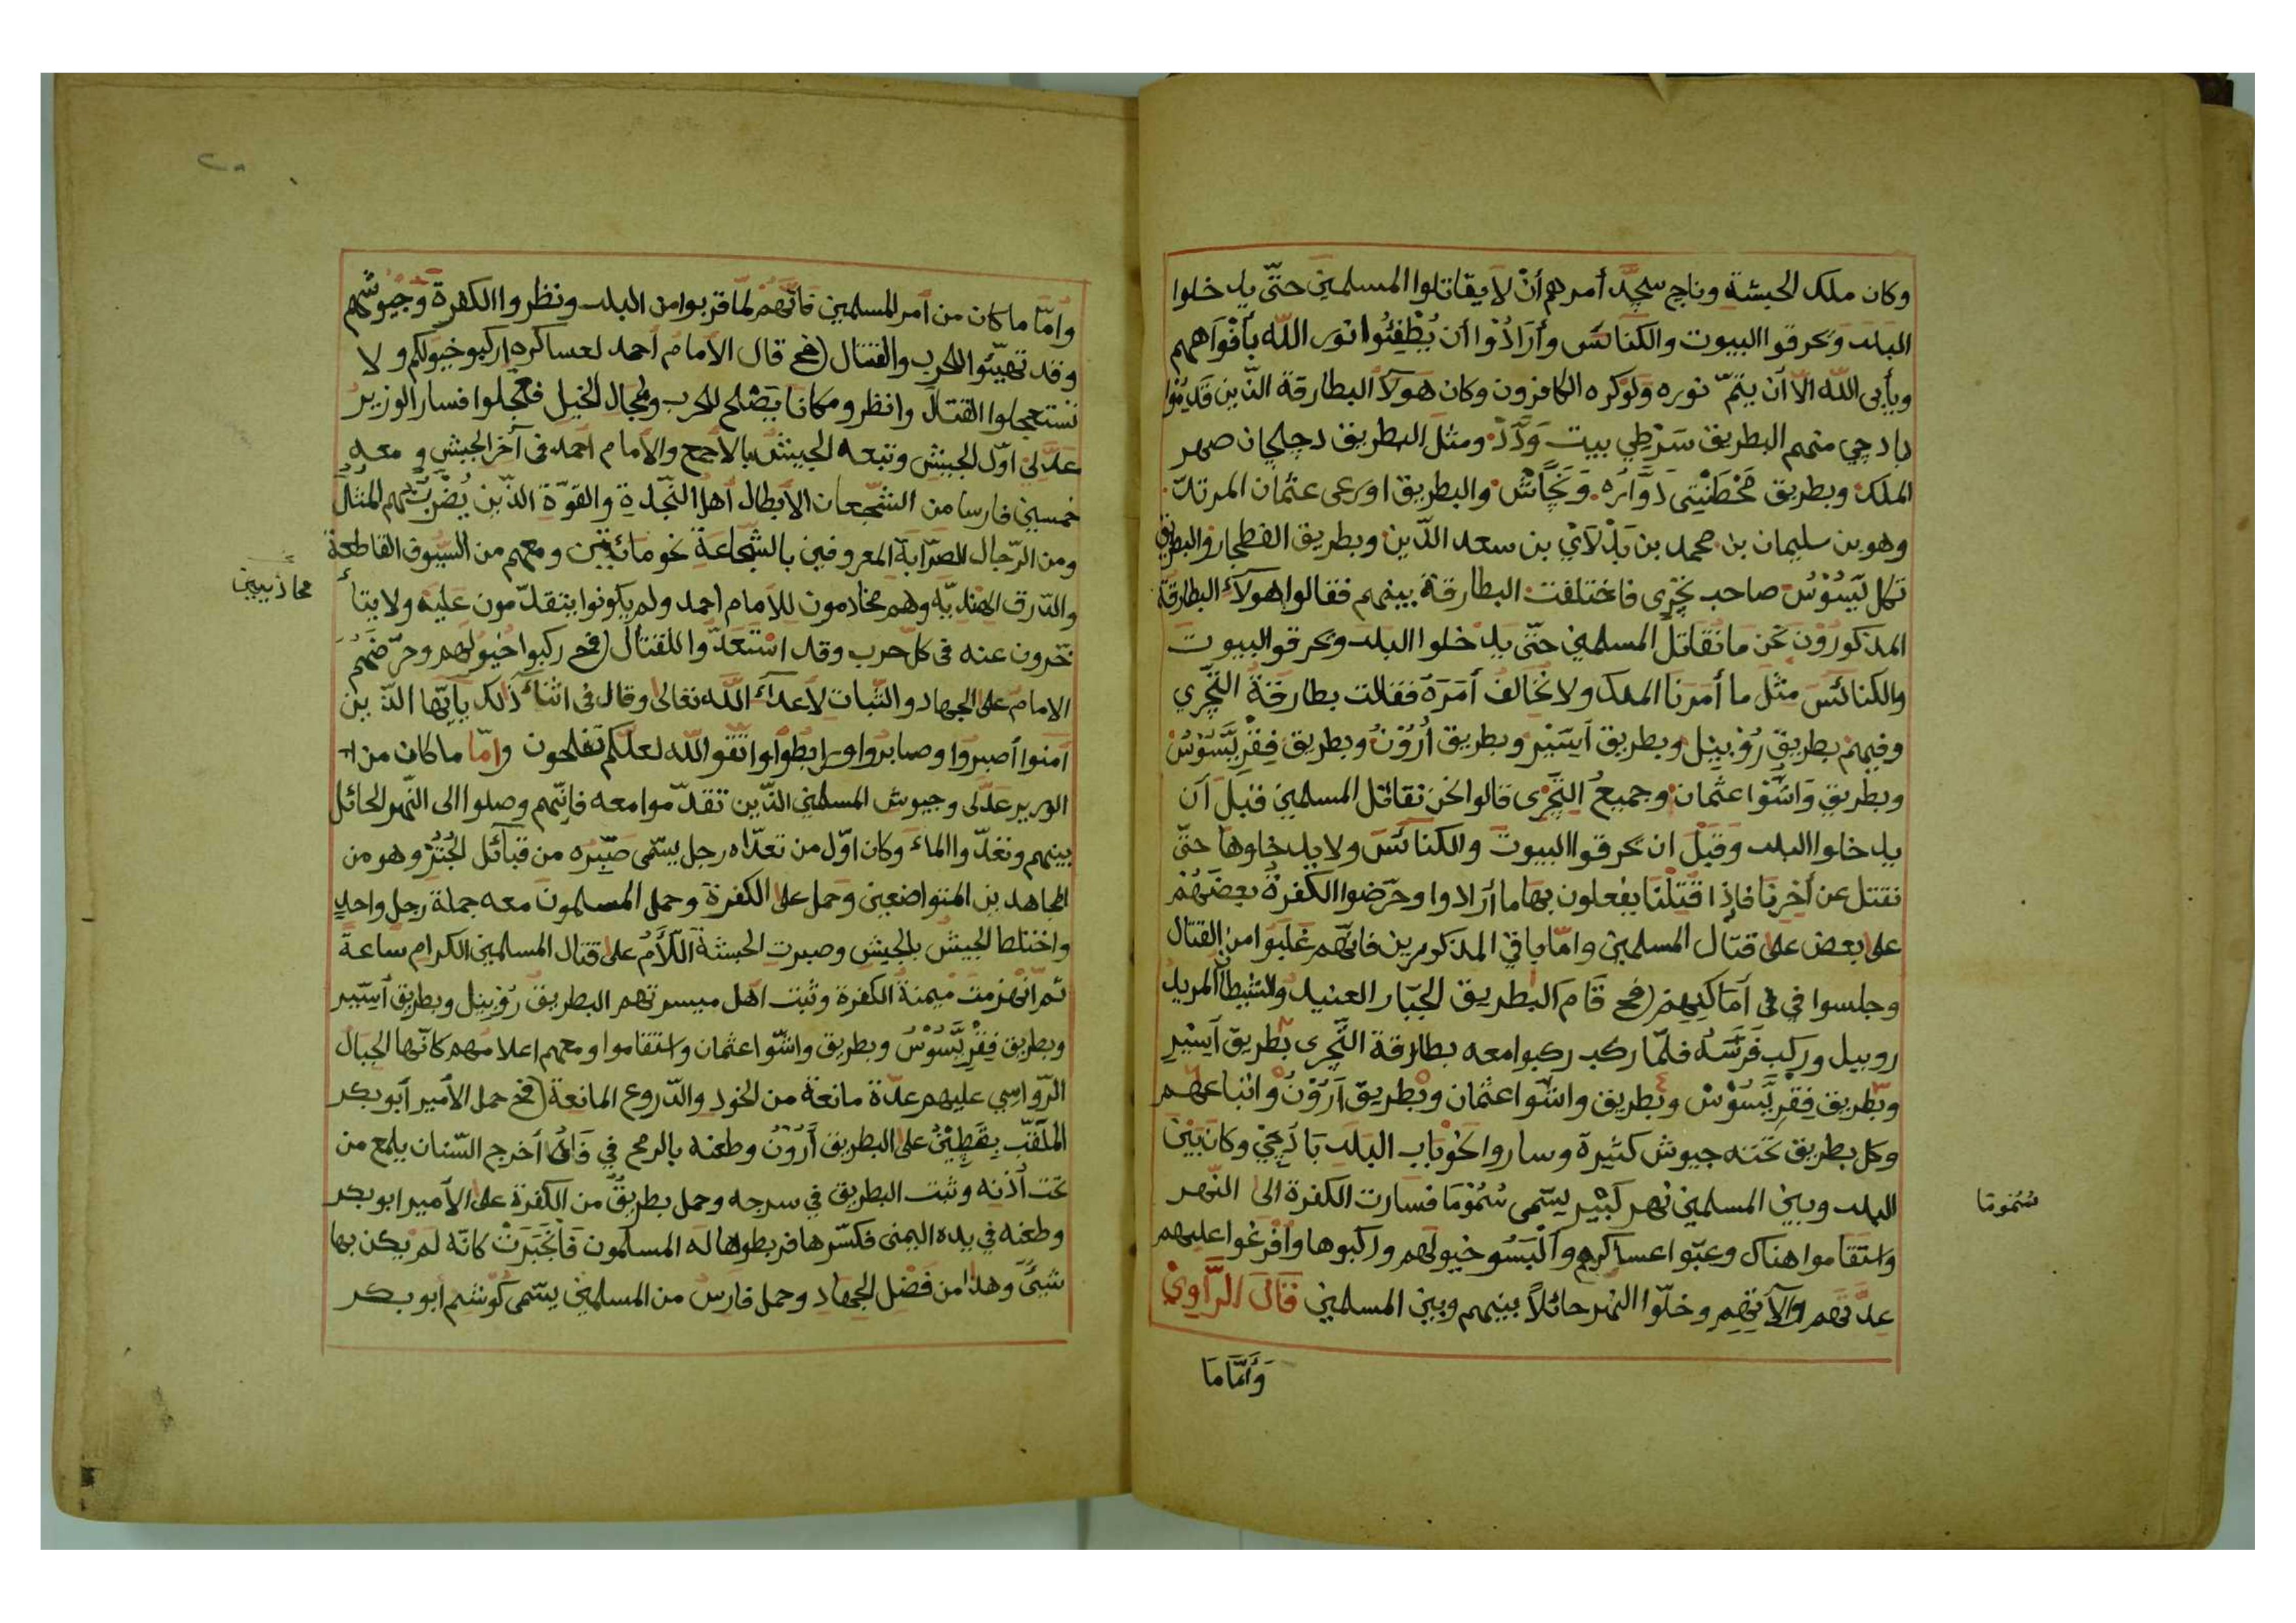 وكان ملك الحبشة وناج سجد أمرهم أنْ لا يقاتلوا المسلمين حتّى يدخلوا
البلد وَيحرقوا البيوت والكنائس وأرَادُوْا أن يُطْفِئُوا نور اللّه بأفْوَاههم
ويأبى اللّه الّا أن يتمّ نوره وَلوْكره الكافرون وكان هَولآء البطارقة الذّين قدموا
بادجي منهم البطريق سَرْطِي بيت وَدَدْ ومثل البطريق دجلحان صهر
الملك وبطريق تَخْطَنْيَتِى دَوَّارُه وَنَجَّاشْ والبطريق اورعى عثمان المرتدّ
وهو بن سليمان بن محمد بن بَدْلَايْ بن سعد الدّين وبطريق الفطجار والبطريق
تكل يَسُوْسْ صاحب تِجْرِى فاختلفت البطارقة بينهم فقالوا هولآء البطارقة
المذكورُوْنَ نَحن مَا نُقَاتل المسلمين حتّى يدْخلوا البلد ويحرقوا البيوت
والكنائسَ مثْل ما أمَرنَا الملك ولا نُخَالف أمَرَه فقالت بطارقة التِّجْري
وفيهم بطريق رُوْبِيْل وبطريق آيسَير وبطريق أُرُوْنْ وبطريق فِقْرِيَّسُوْسْ
وبطريق وَاسَنْوا عثمان وجميعُ التِّجْرِى قالوا نحن نقاتل المسلمين قبل أن
يدخلوا البلد وَقبْلَ ان يحرقوا البيوت والكنائسَ ولا يدخلوها حتىّ
نقتتل عن آخرِنَا فاِذا قُتِلْنَا يفعلون بهَا ما أرَادوا وحَرّضوا الكفرةُ بعضَهُمْ
على بعض على قتال المسلمين وامّا باقي المذكورين فانّهم غَلَبُوا من القتال
وجلسوا في في أمَاكنِهِم (فح قَامَ البطريق الجبّار العنيد والشيطان المريد
روبيل وركب فَرَسَه فلمّا ركب ركبوا معه بطارقة التِّجرى بطريق آيسَير
وبطريق فِقْرِيَّسُوْسْ وبطريق واسّوا عثمان وبطريق آرَوْنْ واتباعهم
وكل بطريق تَحَته جيوش كثيرة وساروا نَحْوبَاب البَلد بَادَجِيْ وكان بَيْنَ
البلد وبين المسلمين نهر كَبْيْر يسَمى سُمُوْمَا فسارت الكفرة الى النّهر
وَاستقاموا هناك وعبّوا عساكرهم وآلْبَسُوا خيولهم وركبوها وأفرغوا عليهم
عدّتهَم وآلآتِهِمِ وخلّوا النهر حائلاً بينهم وبين المسلمين قَالَ الرَّاوِيْ
وَأمَّا مَا
سُمُومَا
وأمّا ما كان من أمر المسلمين فانّهُمْ لمّا قربوا من البلد ونظروا الكفرة وَجُيُوشهم
وقد تهيّئوا للحرب والقتال (فح قال الأمام أحمد لعساكره اركبو خيولكم و لا
تستعجلوا القتال وانظرو مكانا يَصْلح للحرب ومجال الخيل فعجلوا فسار الوزير
عدّلى اوّل الجيش وتبعه الجيش بالأجمح والأمام احمد فى آخر الجيش و معه
خمسين فارسا من الشّجعان الأبطال أهل النّجدة والقوّة الذّين يُضْرَبُ بهم المثل
ومن الرّجال الصرّابة المعروفين بالشّجاعة نحو مائتين ومعهم من السّيوف القاطعة
والدّرق الهنديّه وهم مخادمون للأمام احمد ولم يكونوا يتقدّمون عَليه ولا يتأ
خّرون عنه فى كل حرب وقد استعَدّوا للقتال (فح ركبوا خيولهم وحرّضَهُم
الامام على الجهاد والثّبات لأعدآء اللّه تعالى وقال فى اثنآء ذلك يا أيّها الذّين
آمنوا أصبروا وصابروا ورابطوا واتّقوا اللّه لعلّكم تفلحون وامّا ما كان من ا
الوزير عدّلى وجيوش المسلمين الذّين تقدّموا معه فانّهم وصلوا الى النّهر الحائل
بينهم وتعدّوا المآء وكان اوّل من تعدّاه رجل يسّمى صَبِّرُه من قبآئل الجُتُر وهو من
المجاهدين المتواضعين وَحمل على الكفرة وحمل المسلمون معه جملة رجل واحد
واختلط الجيشُ بالجيش وصبرت الحبشة الّلأَمُ على قتال المسلمين الكرام ساعة
ثم انْهزمت مَيْمنة الكفرة وثبت اهل ميسرتهم البطريق رُوْبِيْل وبطريق آيسَير
وبطريق فِقْرِيَّسُوْسْ وبطريق واسّوا عثمان واستقاموا ومعهم اعلامهم كانّها الجبال
الرّواسِي عليهم عدّة مانعة من الخود والدّروع المانعة (فح حمل الأمير أبو بكر
الملقّب بِقَطِيْنُ على البطريق أَرَوْنْ وطعنه بالرمح في فَاهُ أخرج السّنان يلمع من
تحت أذنه وثبت البطريق في سرجه وحمل بطريقٌ من الكفرة على الأمير ابو بكر
وطعنه في يده اليمنى فكسّرها فربطوها له المسلمون فَانْجَبَرَتْ كانّه لم يكن بها
شئٌ وهذا من فَضْل الجهاد وحمل فارس من المسلمين يسّمى كُوشم أبو بكر
محاذبيين